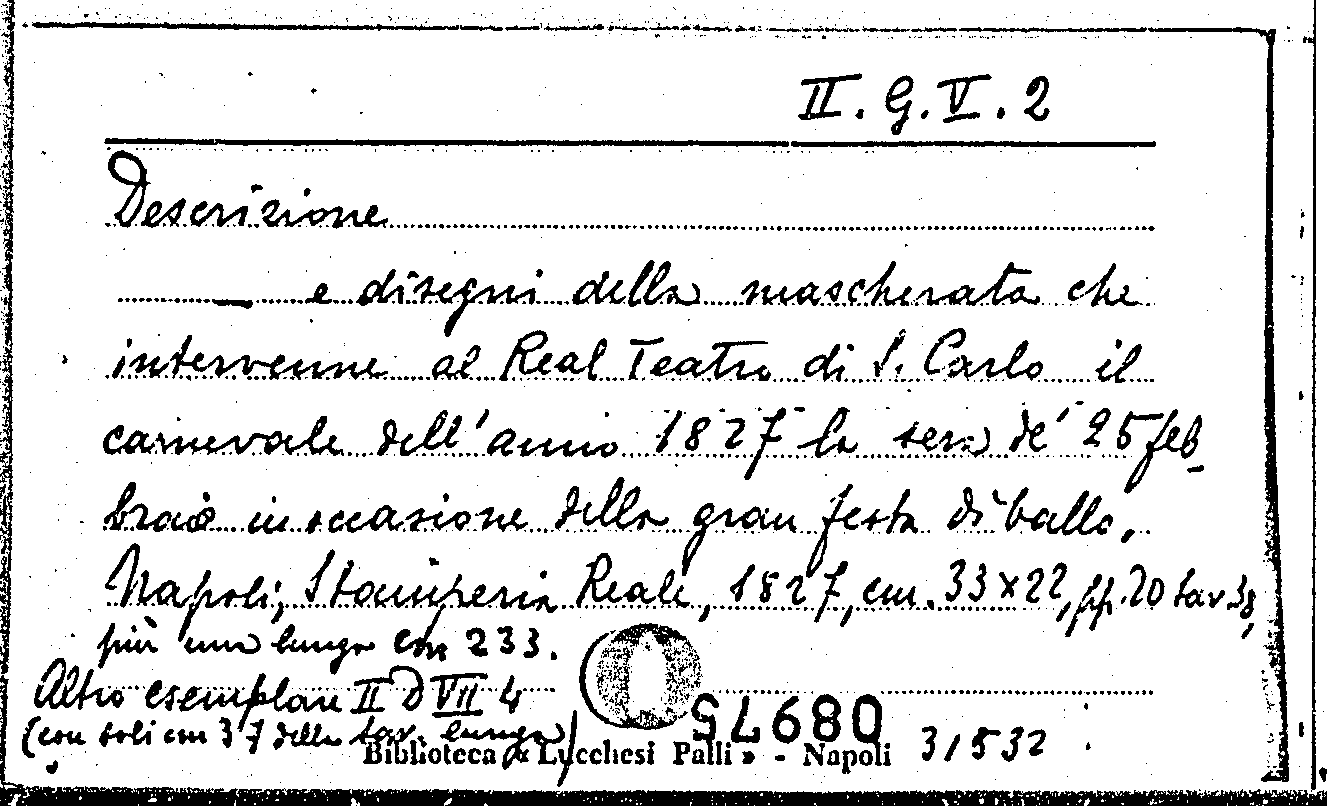 II. G. V. 2
Descrizione
— e disegni della mascherata che
intervenne al Real Teatro di S. Carlo il
carnevale dell'anno 1827 la sera de' 25 feb-
braio in occasione della gran festa di ballo.
Napoli, Stamperia Reale, 1827, cm. 33×22, pp. 20 tav. 38,
più una lunga cm 233.
Altro esemplare II D VII 4
(con soli cm 37 della tav. lunga)
54680
Biblioteca « Lucchesi Palli » - Napoli 31532